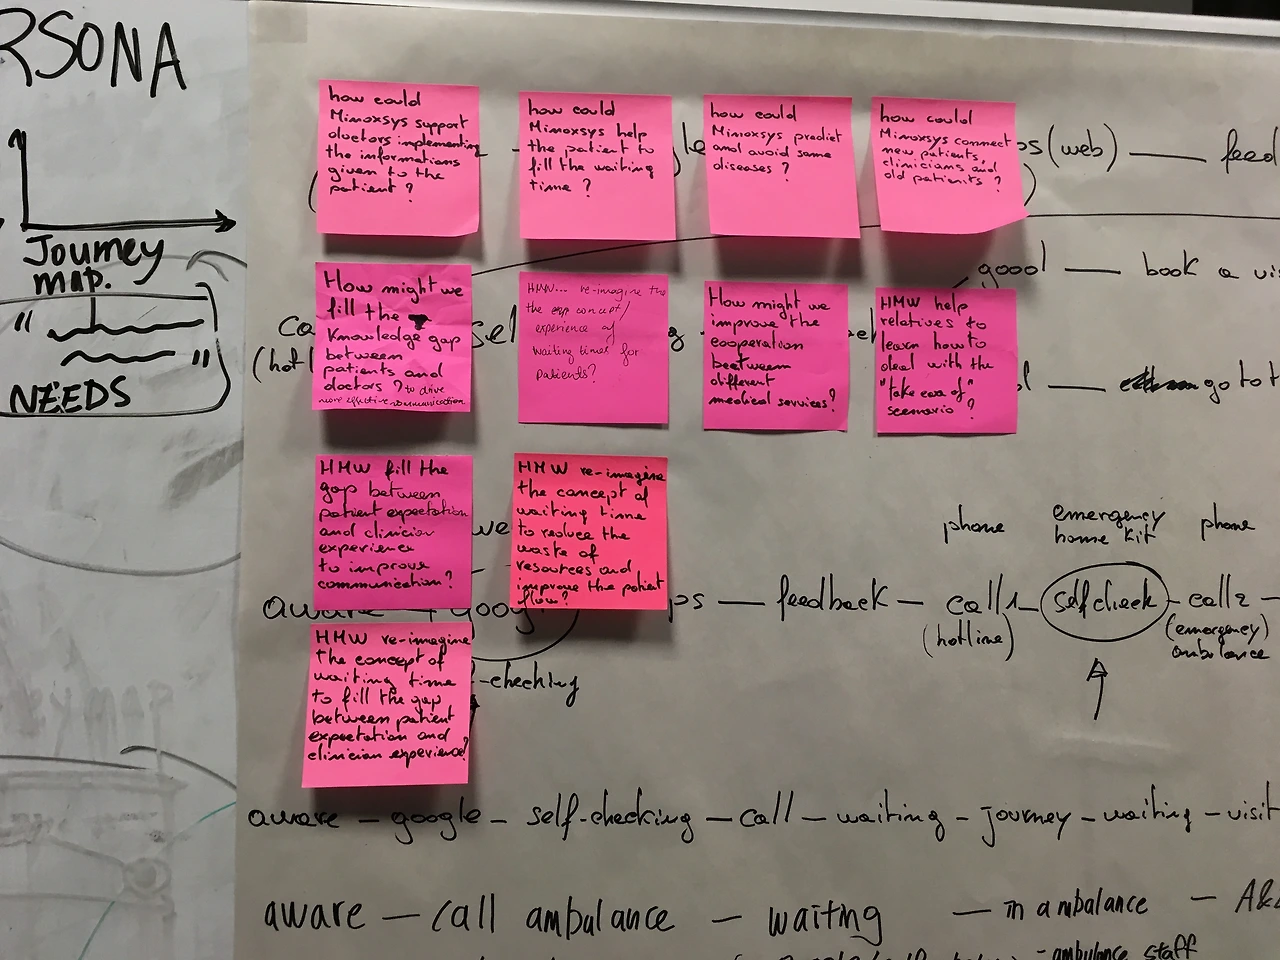 RSONA
Journey
map.
"
"
NEEDS
how could
Minoxsys support
doctors implementing
the informations
given to the
patient?
how could
Minoxsys help
the patient to
fill the waiting
time?
how could
Minoxsys predict
and avoid some
diseases?
how could
Minoxsys connect
new patients,
clinicians and
old patients?
(web) — feed
How might we
fill the
knowledge gap
between
patients and
doctors? to drive
more effective communication
HMW... re-imagine the
the concept/
experience of
waiting times for
patients?
How might we
improve the
cooperation
beetween
different
medical services?
HMW help
relatives to
learn how to
deal with the
"take care of"
scenario?
good — book a vis
(hot
— go to t
HMW fill the
gap between
patient expectation
and clinician
experience
to improve
communication?
HMW re-imagine
the concept of
waiting time
to reduce the
waste of
resources and
improve the patient
flow?
phone
emergency
home kit
phone
aware — goog ps — feedback — call 1 — selfcheck — call 2 —
(hotline)
(emergency)
ambulance
HMW re-imagine
the concept of
waiting time
to fill the gap
between patient
expectation and
clinician experience?
-checking
aware — google — self-checking — call — waiting — journey — waiting — visit
aware — call ambulance — waiting — in ambulance — A&
- ambulance staff